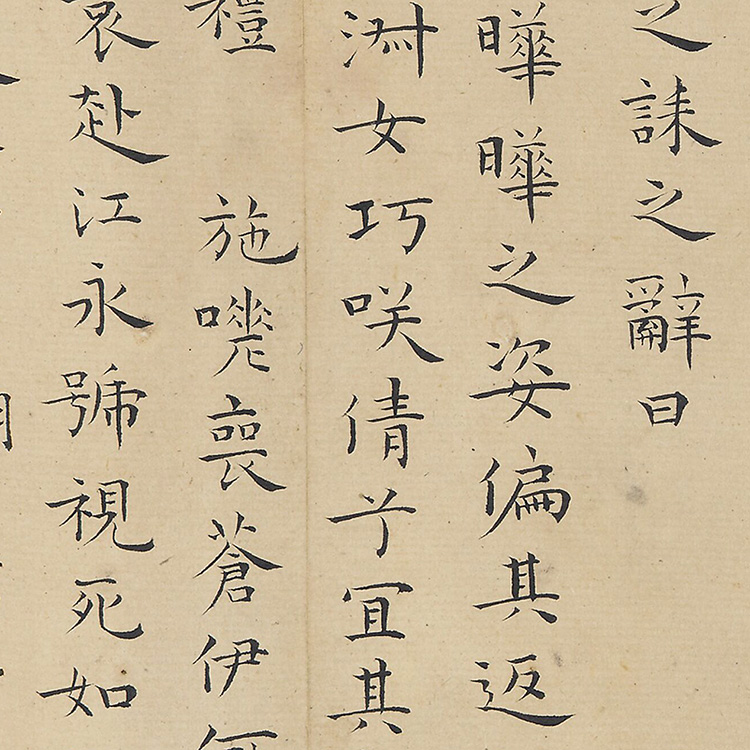 之誄之辭曰
曄曄之姿偏其返
淑女巧咲倩兮宜其
禮 施嗟喪蒼伊何
哀赴江永號視死如